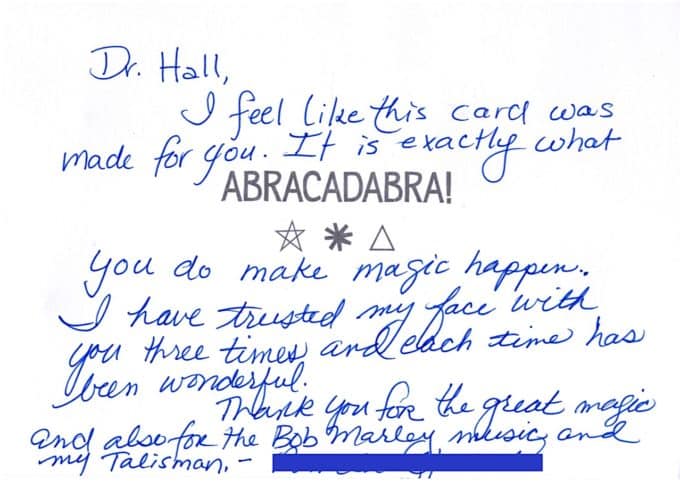 Dr. Hall,
I feel like this card was
made for you. It is exactly what
ABRACADABRA!
you do make magic happen.
I have trusted my face with
you three times and each time has
been wonderful.
Thank you for the great magic
and also for the Bob Marley music and
my Talisman, -